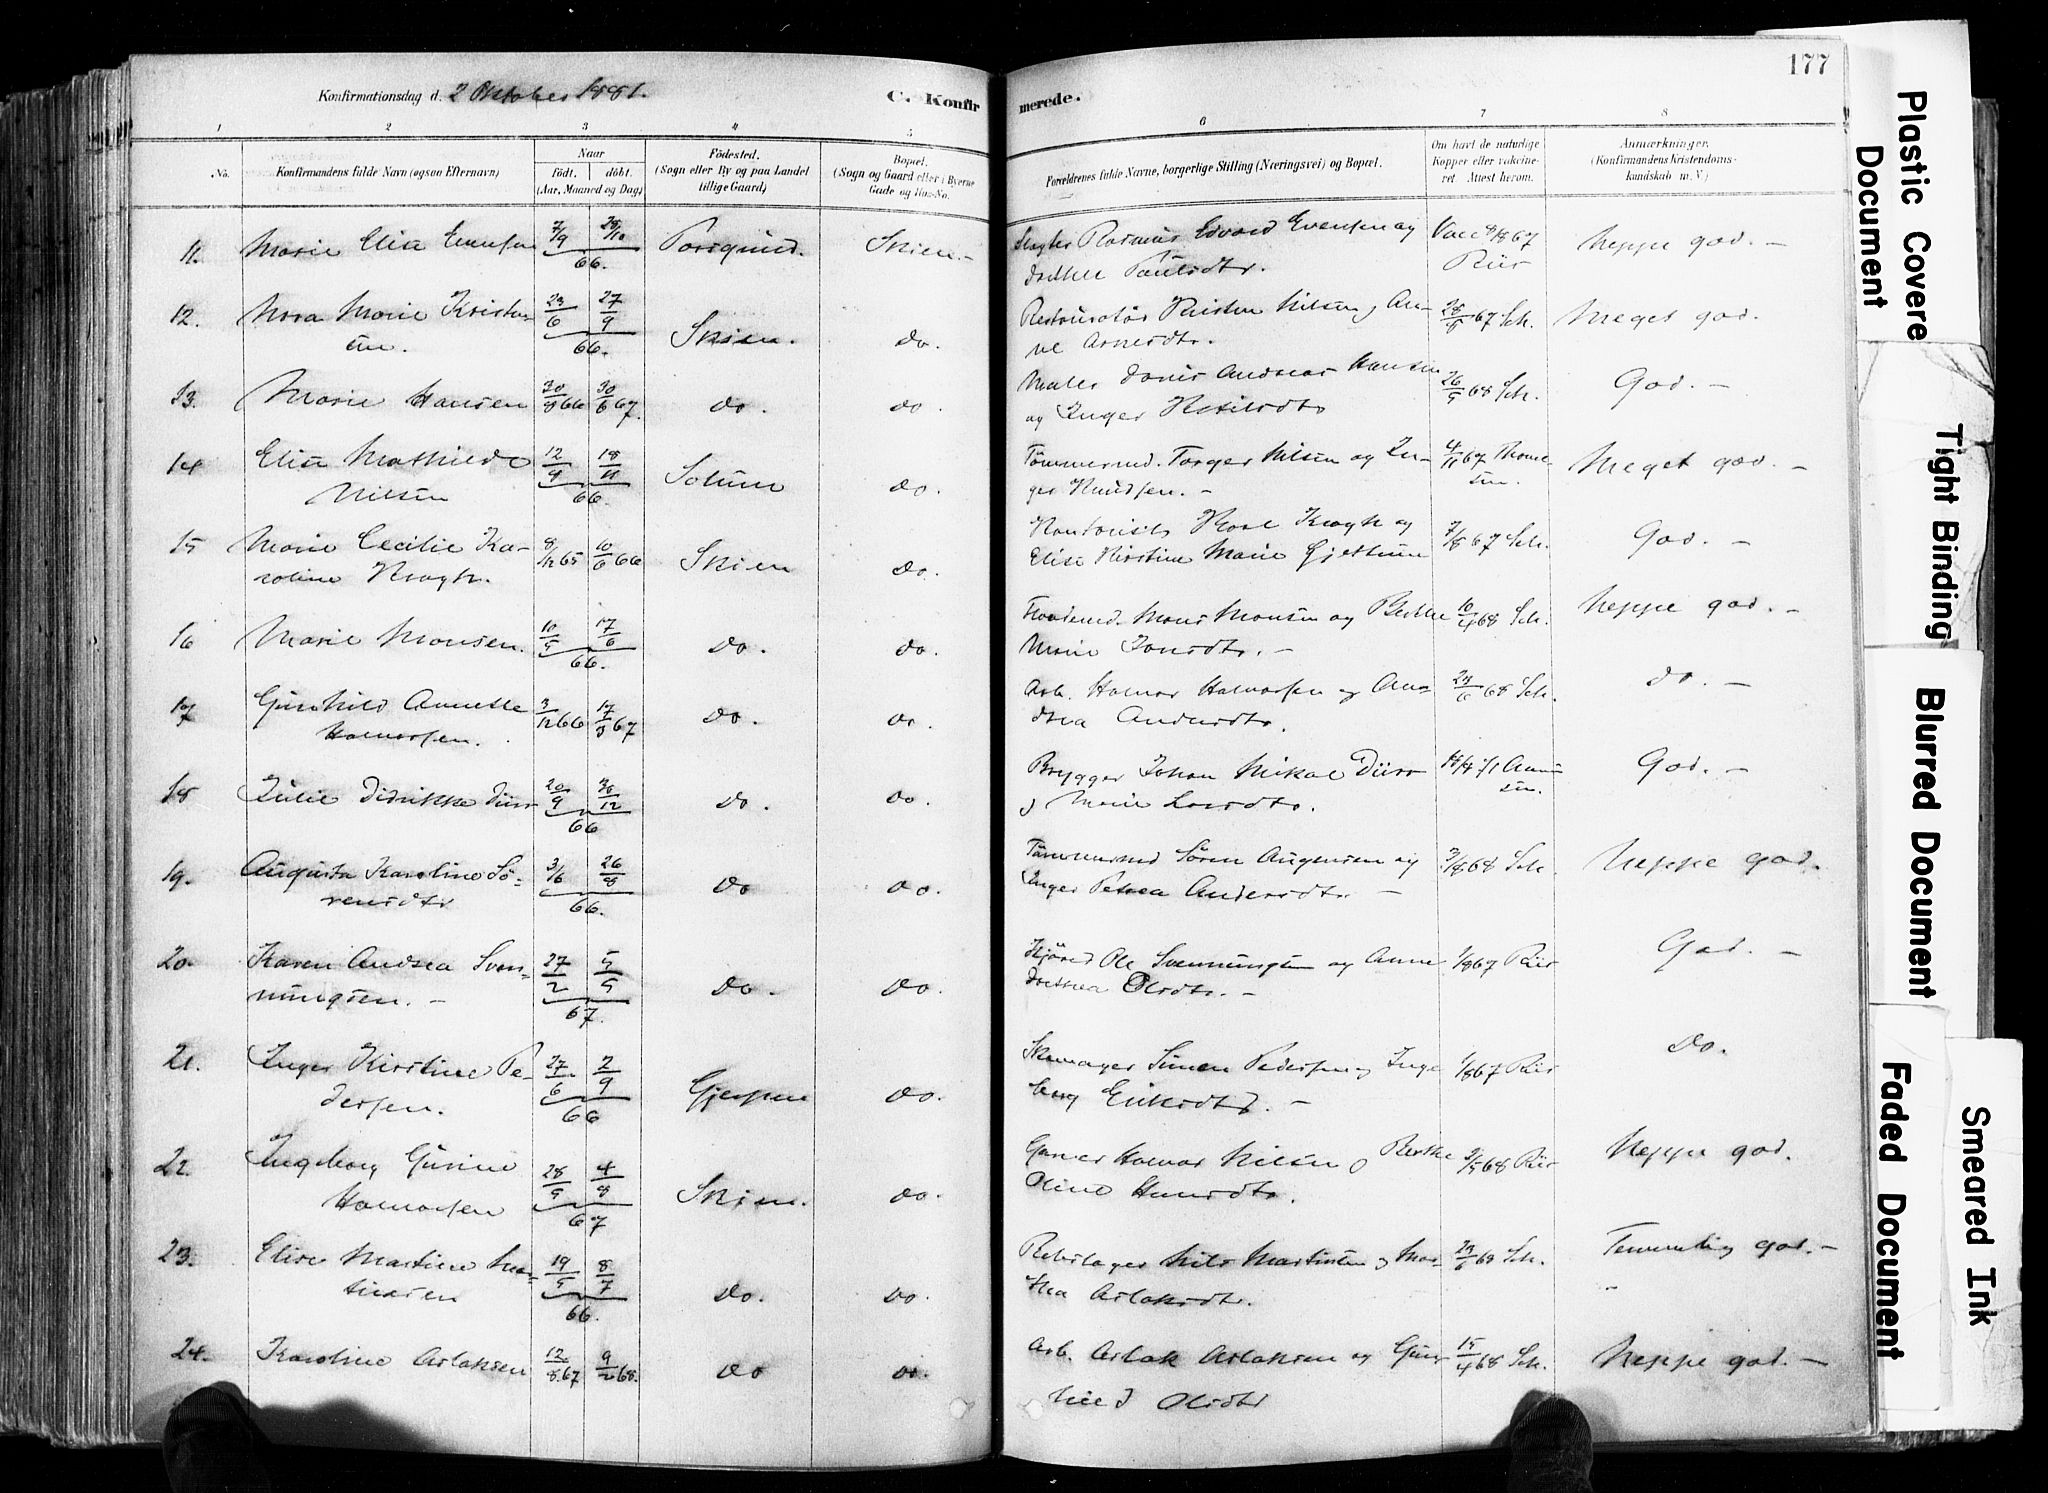 177
Konfirmationsdag d. 2 Oktober 1881.
C. Konfirmerede.
1 2 3 4 5 6 7 8
No.
Konfirmandens fulde Navn (ogsaa Efternavn)
Naar
Födt. döbt.
(Aar, Maaned og Dag)
Födested.
(Sogn eller By og paa Landet
tillige Gaard)
Bopæl.
(Sogn og Gaard eller i Byerne
Gade og Hus-No.
Forældrenes fulde Navne, borgerlige Stilling (Næringsvei) og Bopæl.
Om havt de naturlige
Kopper eller vaccine-
ret. Attest herom.
Anmærkninger.
(Konfirmandens Kristendoms-
kundskab m. V.)
11. Marie Elise Evensen 7/9 28/10 66. Porsgrund. Skien.- Rasmus Edvard Evensen og Vacc 8/8 67 Neppe god. -
Paulsdtr. Riis
12. Nora Marie Kristen- 23/6 27/9 Skien. do. Restauratör Kristen Nilsen og An- 28/8 67 Sch. Meget god.
sen. 66. ne Arnesdtr.
13. Marie Hansen 30/8 66 30/6 67. do. do. Maler Andreas Hansen 26/5 68 Sch. God. -
og Inger Ketilsdtr
14 Elise Mathilde 12/9 18/11 Solum do. Tömmermd. Torger Nilsen og In- 4/11 67 Thome- Meget god. -
Nilsen 66. ger Knudsen. - sen.
15 Marie Cecilie Ka- 8/12 65 10/6 66 Skien do. Karl Krogh og 7/8 67 Sch. God. -
roline Krogh. Elise Kirstine Marie Gjethun
16 Marie Monsen. 10/5 17/6 66. do. do. Mons Monsen og Berthe 10/4 68 Sch. Neppe god. -
Marie Jonsdtr. -
17 Gunhild Annette 3/12 66 17/3 67 do. do. Arb. Halvor Halvorsen og An- 23/6 68 Sch. do. -
Halvorsen. drea Andersdtr.
18 Julie Didrikke Dürr 20/9 30/12 66 do. do. Brygger Johan Mikal Dürr God. -
og Marie Larsdtr.
19. Augusta Karoline Sö- 3/6 26/8 do do. Tömmermd Sören Augensen og 3/8 68 Sch. Neppe god.
rensdtr 66. Inger Petrea Andersdtr. -
20. Karen Andrea Sven- 27/2 5/5 do. do. Ole Svennungsen og Anne 1/8 67 Riis God. -
nungsen. - 67. Olsdtr. -
21. Inger Kirstine Pe- 27/6 2/9 Gjerpen do. Skomager Simen Pedersen og Inge 1/8 67 Riis do.
dersen. 66 borg Eriksdtr. -
22. Ingeborg Gurine 28/5 4/8 Skien. do. Garver Halvor Nilsen og Berthe 3/5 68 Riis Neppe god.
Halvorsen 67 Oline Hansdtr.
23. Elise Martine Mar- 19/5 8/7 do. do. Rebslager Nils Martinsen og Mar- 23/6 68 Sch. Temmelig god. -
tinsen 66. thea Aslaksdtr.
24. Karoline Aslaksen 12/8 67 9/2 68. do do. Arb. Aslak Aslaksen og Gun- 15/4 68 Sch. Neppe god. -
hild Olsdtr
Plastic Covere
Document
Tight Binding
Blurred Document
Faded Document
Smeared Ink